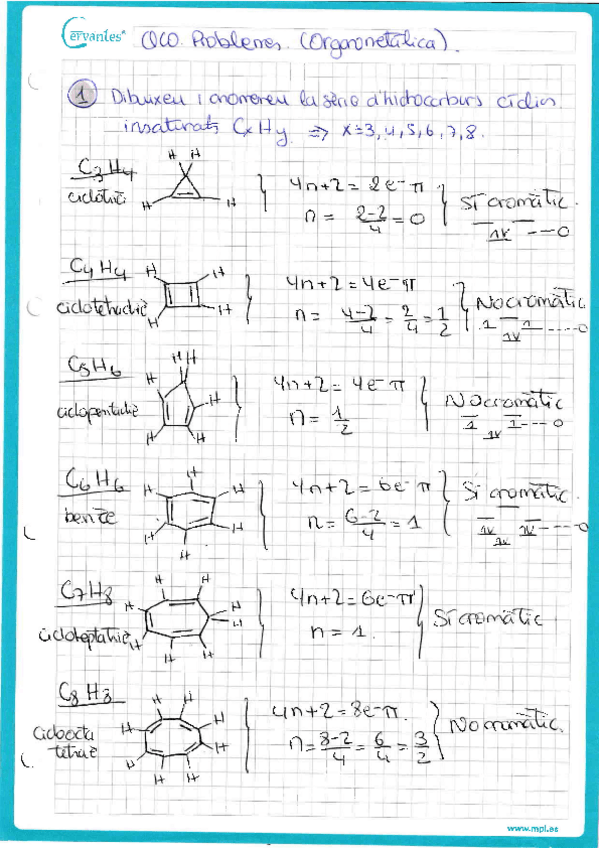 Cervantes QOO Problemes (Organometàlica).
1 Dibuixeu i anomeneu la sèrie d'hidrocarburs cíclics
insaturats CxHy ⇒ x=3,4,5,6,7,8.
C3H4
H H
H H
4n+2 = 2e⁻π
n = 2-2/4 = 0
Sí aromàtic.
1v ---0
C4H4
ciclotetradiè
H H
H H
4n+2 = 4e⁻π
n = 4-2/4 = 2/4 = 1/2
No aromàtic
1 1v 1 ---0
C5H6
ciclopentadiè
H H
H H
H H
4n+2 = 4e⁻π
n = 1/2
No aromàtic
1 1v 1 ---0
C6H6
benzè
H H
H H
H H
4n+2 = 6e⁻π
n = 6-2/4 = 1
Sí aromàtic.
1v 1v 1v ---0
C7H8
H H
H H
H H
H H
4n+2 = 6e⁻π
n = 1.
Sí aromàtic
C8H8
cicloocta
tetraè
H H
H H
H H
H H
4n+2 = 8e⁻π.
n = 8-2/4 = 6/4 = 3/2
No aromàtic.
www.mpl.es